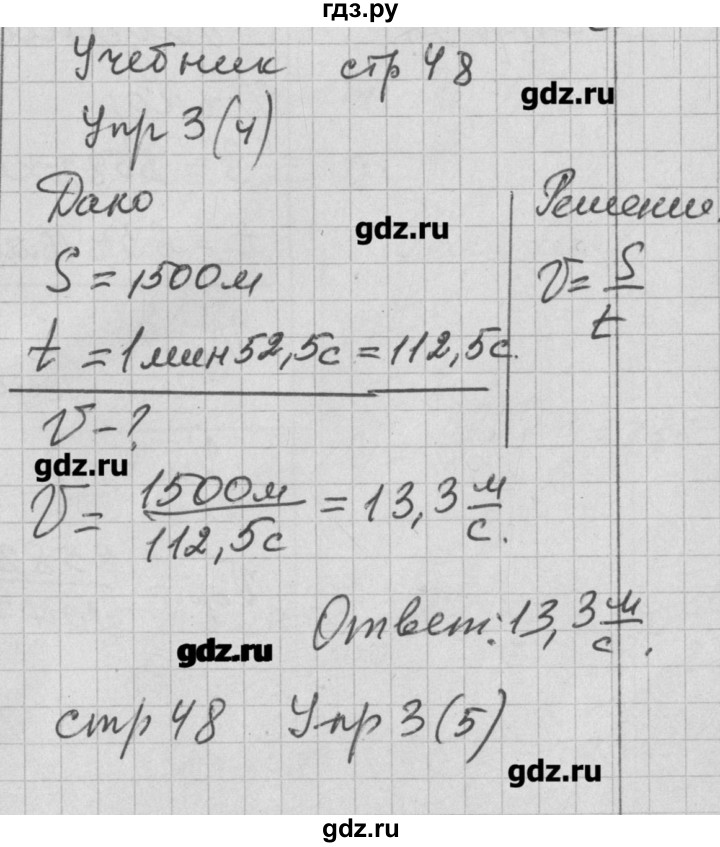 гдз.ру
Учебник стр 48
gdz.ru
Упр 3(4)
Дано
gdz.ru
S = 1500м
t = 1 мин 52,5с = 112,5с.
V - ?
Решение
V = S/t
gdz.ru
V = 1500м/112,5с = 13,3 м/с.
Ответ: 13,3 м/с.
gdz.ru
стр 48 Упр 3(5)
gdz.ru
gdz.ru